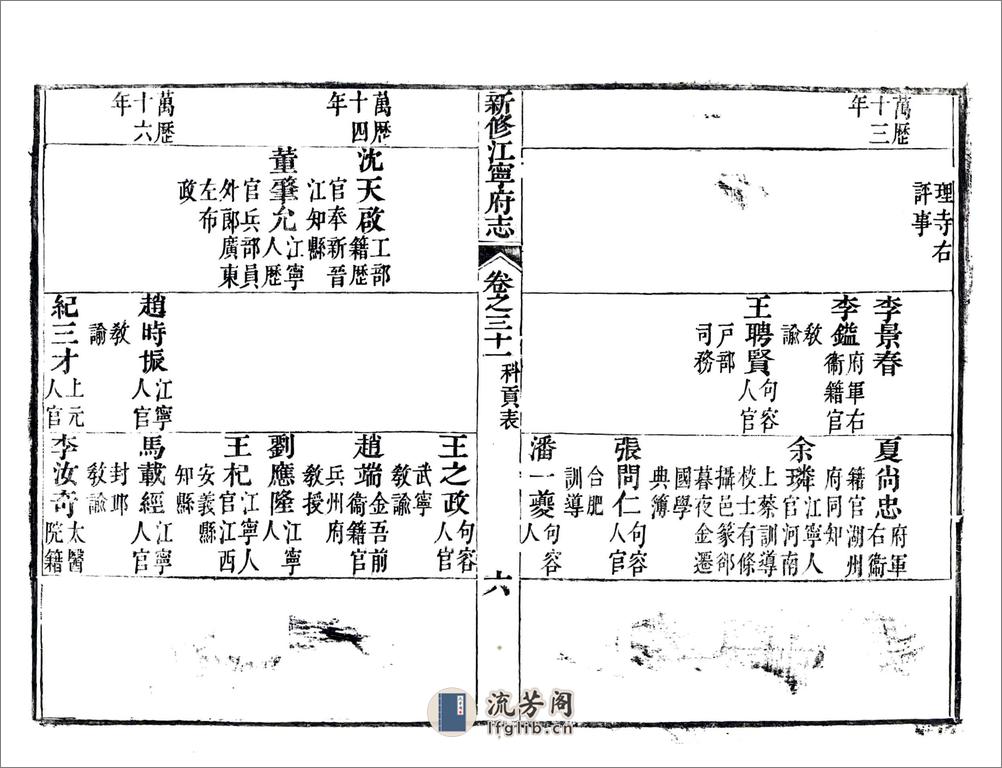 萬歷
十三
年
理寺右
評事
李景春
李鎰府軍右
衞籍官
教
諭
王聘賢句容
人官
戸部
司務
夏尚忠府軍
右衞
籍官湖州
府同知
余璘江寧人
官河南
上蔡訓導
校士有條
攝邑篆郤
暮夜金遷
國學
典簿
張問仁句容
人官
合肥
訓導
潘一夔句容
人
新修江寧府志
卷之三十一
科貢表
六
萬歷
十四
年
萬歷
十六
年
沈天啟工部
籍歷
官奉新晉
江知縣
董肇允江寧
人歷
官兵部員
外郎廣東
左布
政
趙時振江寧
人官
教
諭
紀三才上元
人官
王之政句容
人官
武寧
教諭
趙端金吾前
衞籍官
兵州府
教授
劉應隆江寧
人
王杞江寧人
官江西
安義縣
知縣
馬載經江寧
人官
封邱
教諭
李汝奇太醫
院籍
流芳阁
lfglib.cn